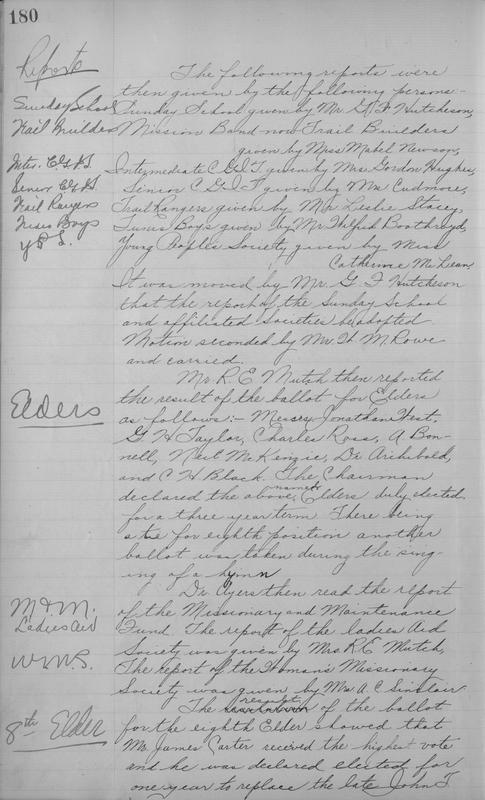 180
Reports
The following reports were
then given by the following persons:-
Sunday School
Sunday School given by Mr. G. F. Hutcheson,
Trail Builders
Mission Band now Trail Builders
given by Miss Mabel Newson,
Inter. C.G.I.T.
Intermediate C.G.I.T. given by Mrs. Gordon Hughes,
Senior C.G.I.T.
Senior C.G.I.T. given by Mrs. Cudmore,
Trail Rangers
Trail Rangers given by Mr. Leslie Stacey,
Tuxis Boys
Tuxis Boys given by Mr. Wilfred Boothroyd,
Y.P.S.
Young Peoples Society given by Miss
Catherine McLean.
It was moved by Mr. G. F. Hutcheson
that the report of the Sunday School
and affiliated Societies be adopted
Motion seconded by Mr. W. M. Rowe
and carried.
Mr. R. E. Mutch then reported
Elders
the result of the ballot for Elders
as follows:- Messrs. Jonathan West,
G. H. Taylor, Charles Ross, A. Bon-
nell, Neil McKenzie, Dr. Archibald,
and C. H. Black. The Chairman
declared the above named Elders duly elected
for a three year term. There being
a tie for eighth position another
ballot was taken during the sing-
ing of a hymn
Dr. Ayers then read the report
M & M.
of the Missionary and Maintenance
Ladies Aid
Fund. The report of the Ladies Aid
Society was given by Mrs. R. E. Mutch,
W.M.S.
The report of the Woman's Missionary
Society was given by Mrs. A. C. Sinclair.
The result of the ballot
8th Elder
for the eighth Elder showed that
Mr. James Carter received the highest vote
and he was declared elected for
one year to replace the late John T.